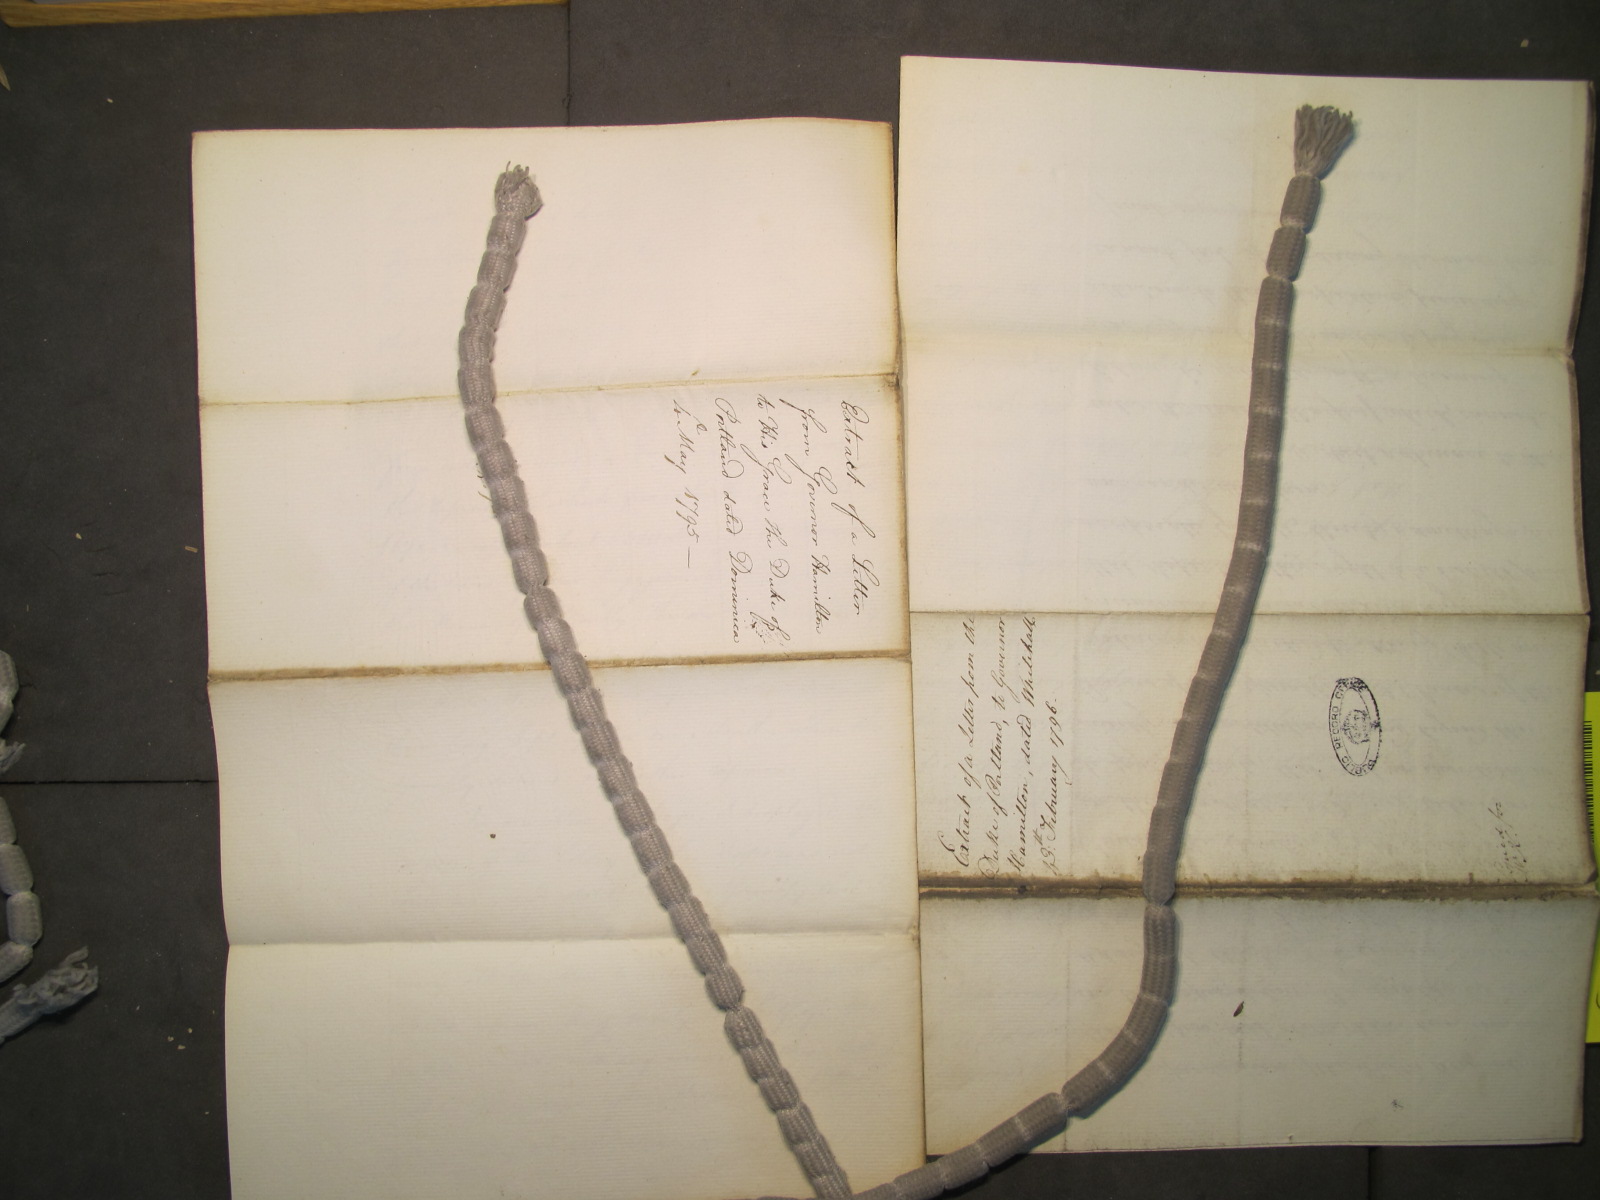 Extract of a Letter
from Governor Hamilton
to His Grace the Duke of
Portland dated Dominica
May 1795 —
Extract of a Letter from the
Duke of Portland, to Governor
Hamilton, dated Whitehall
13th. February 1796.
PUBLIC RECORD